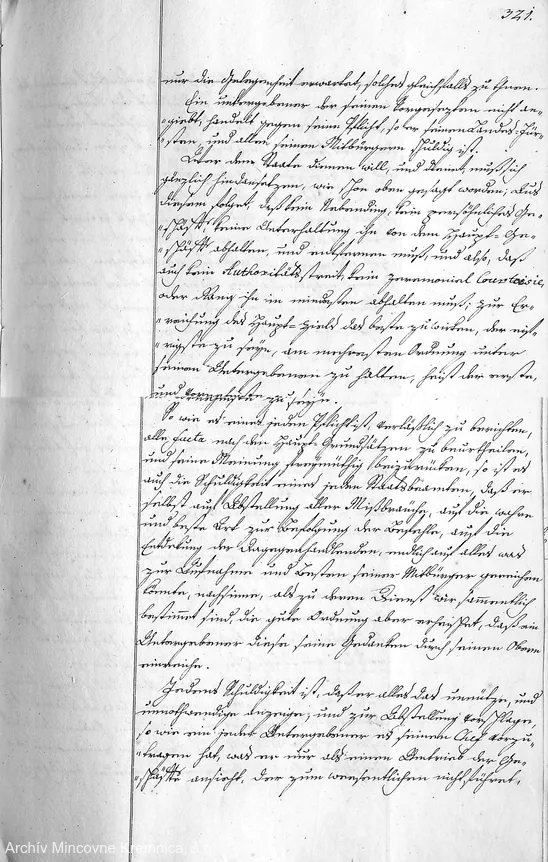 321.
nur die Gelegenheit erwartet, solches gleichfalls zu thun.
Ein untergebener der seinen Vorgesezten nicht an-
"giebt, handelt gegen seine Pflicht, so er seinen Landes-Für-
"sten, und allen seinen Mitbürgern schuldig ist.
Wer dem Staate dienen will, und dienet, muß sich
gänzlich hindansetzen, wie schon oben gesagt worden; Aus
diesem folget, daß kein Nebending, kein persöhnliches Ge-
"schäft, keine Unterhaltung ihn von dem Haupt-Ge-
"schäft abhalten, und entfernen muß, und also, daß
auch kein Authoritäts streit, kein zeremoniel Courtoisie,
oder Rang ihn im mindesten abhalten muß; zur Er-
"reichung des Haupt-Ziels das beste zu wirken, der eif-
"rigste zu seyn, am mehresten Ordnung unter
seinen Untergebenen zu halten, heist der erste,
und vornehmste zu seyn.
So wie es eines jeden Pflicht ist, verläßlich zu berichten,
alle facta nach den Haupt-Grundsätzen zu beurtheilen,
und seine Meinung freymüthig beizurücken, so ist es
auch die Schuldigkeit eines jeden Staatsbeamten, daß er
selbst auf Abstellung aller Mißbräuche, auf die wahre
und beste Art zur Befolgung der Befehle, auf die
Entdekung der dagegenhandlenden, endlich auf alles was
zur Aufnahme und Besten seiner Mitbürger gereichen
könnte, nachsinne, als zu deren Dienst wir sämmentlich
bestimmt sind, die gute Ordnung aber erheischet, daß ein
Untergebener diese seine Gedanken durch seinen Obern
einreiche.
Jedens Schuldigkeit ist, daß er alles das unnütze, und
unnothwendige anzeige, und zur Abstellung vorschlage,
so wie ein jeder Untergebener es seinem Chef vorzu-
"tragen hat, was er nur als einen Umtrieb der Ge-
"schäfte ansieht, der zum weesentlichen nicht führet.
Archív Mincovne Kremnica,